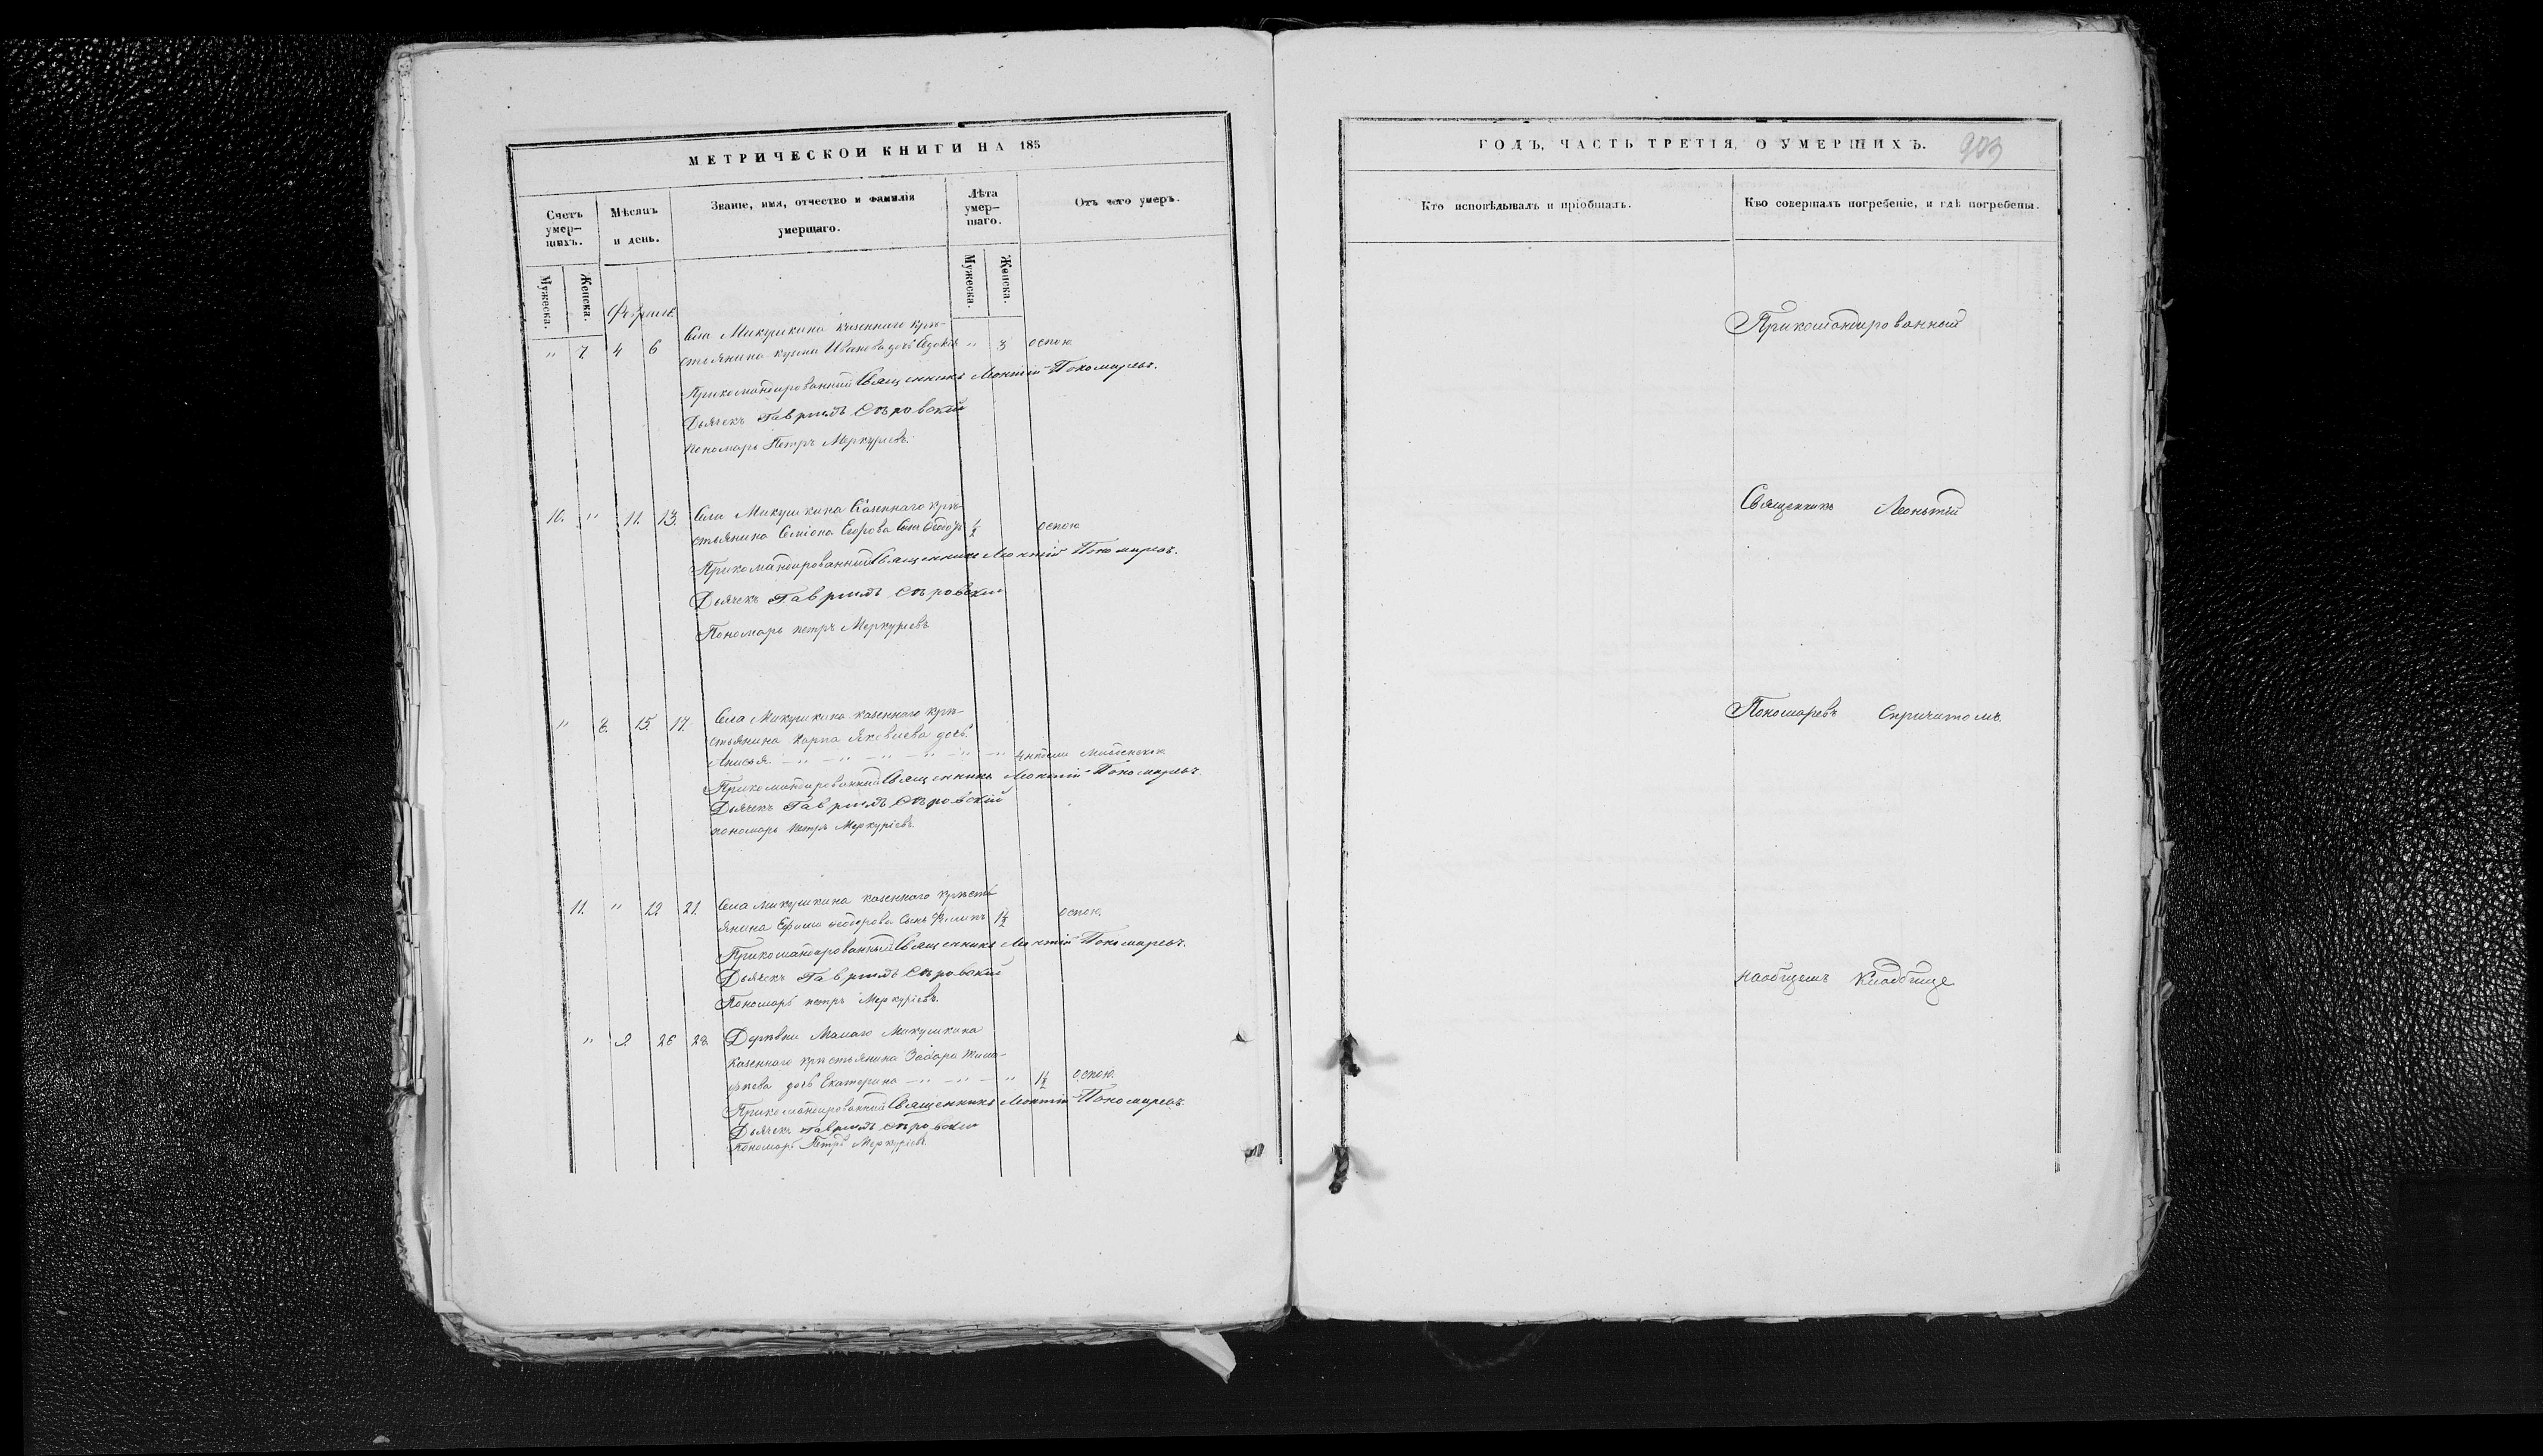 МЕТРИЧЕСКОИ КНИГИ НА 185
Счетъ умер-шихъ.
Мѣсяцъ и день.
Званіе, имя, отчество и фамилія умершаго.
Лѣта умер-шаго.
Отъ чего умеръ.
Мужеска.
Женска.
Мужеска.
Женска.
Февраль
Села Микушкина казеннаго кре-
" 7. 4 6 стьянина Кузмы Иванова дочь " 3 оспою
Прикомандированный Священникъ Леонтій Пономаревъ.
Дьячекъ Гавріилъ Съровскій
Пономарь Петръ Меркурьевъ.
10. " 11. 13. Села Микушкина Казеннаго кре-
стьянина Семіона Егорова Сынъ 1/2 оспою
Прикомандированный Священникъ Леонтій Пономаревъ.
Дьячекъ Гавріилъ Съровскій
Пономарь петръ Меркурьевъ
" 8. 15. 17. Села Микушкина казеннаго кре-
стьянина Карпа Яковлева дочь
Анисья
Прикомандированный Священникъ Леонтій Пономаревъ.
Дьячекъ Гавріилъ Съровскій
пономарь петръ Меркуріевъ
11. " 19 21. Села микушкина казеннаго кресть
янина Ефима Феодорова Сынъ Филипъ 1 1/2 оспою.
Прикомандированный Священникъ Леонтій Пономаревъ.
Дьячекъ Гавріилъ Съровскій
Пономарь петръ Меркуріевъ.
" 9. 26 28. Деревни Малаго Микушкина
казеннаго крестьянина
дочь Екатерина 1 1/2 оспою.
Прикомандированный Священникъ Леонтій Пономаревъ.
Дьячекъ Гавріилъ Съровскій
Пономарь Петръ Меркуріевъ
ГОДЪ, ЧАСТЬ ТРЕТІЯ, О УМЕРШИХЪ.
Кто исповѣдывалъ и пріобщалъ.
Кто совершалъ погребеніе, и гдѣ погребены.
Прикомандированный
Священникъ Леонтій
Пономаревъ Спричитомъ.
Наобщемъ Кладбище